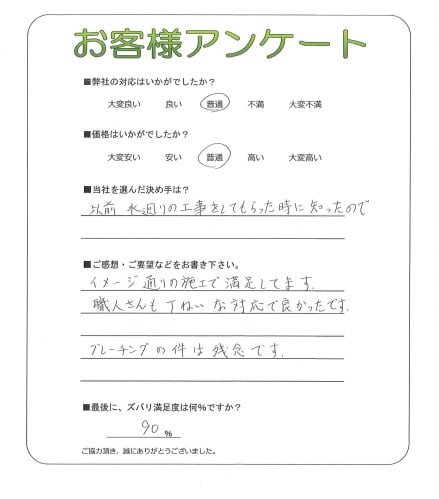 お客様アンケート
■弊社の対応はいかがでしたか？
大変良い 良い 普通 不満 大変不満
■価格はいかがでしたか？
大変安い 安い 普通 高い 大変高い
■当社を選んだ決め手は？
以前 水廻りの工事をしてもらった時に知ったので
■ご感想・ご要望などをお書き下さい。
イメージ通りの施工で満足してます.
職人さんも丁ねいな対応で良かったです.
グレーチングの件は残念です.
■最後に、ズバリ満足度は何％ですか？
90 %
ご協力頂き、誠にありがとうございました。